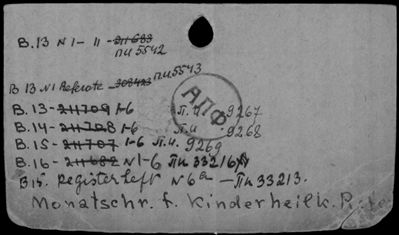 В. 13 N 1 - 11 - 211683
пи 5542
В 13 N1 Referate 308423 пи 5543
АПФ
В. 13 - 211709 1-6 П.и. 9267
В. 14 - 211708 1-6 П.и 9268
В. 15 - 211707 1-6 П.и. 9269
В. 16 - 211682 N 1-6 Пи 33216
В 15. Registerheft N 6a - Пи 33213.
Monatschr. f. Kinderheilk.